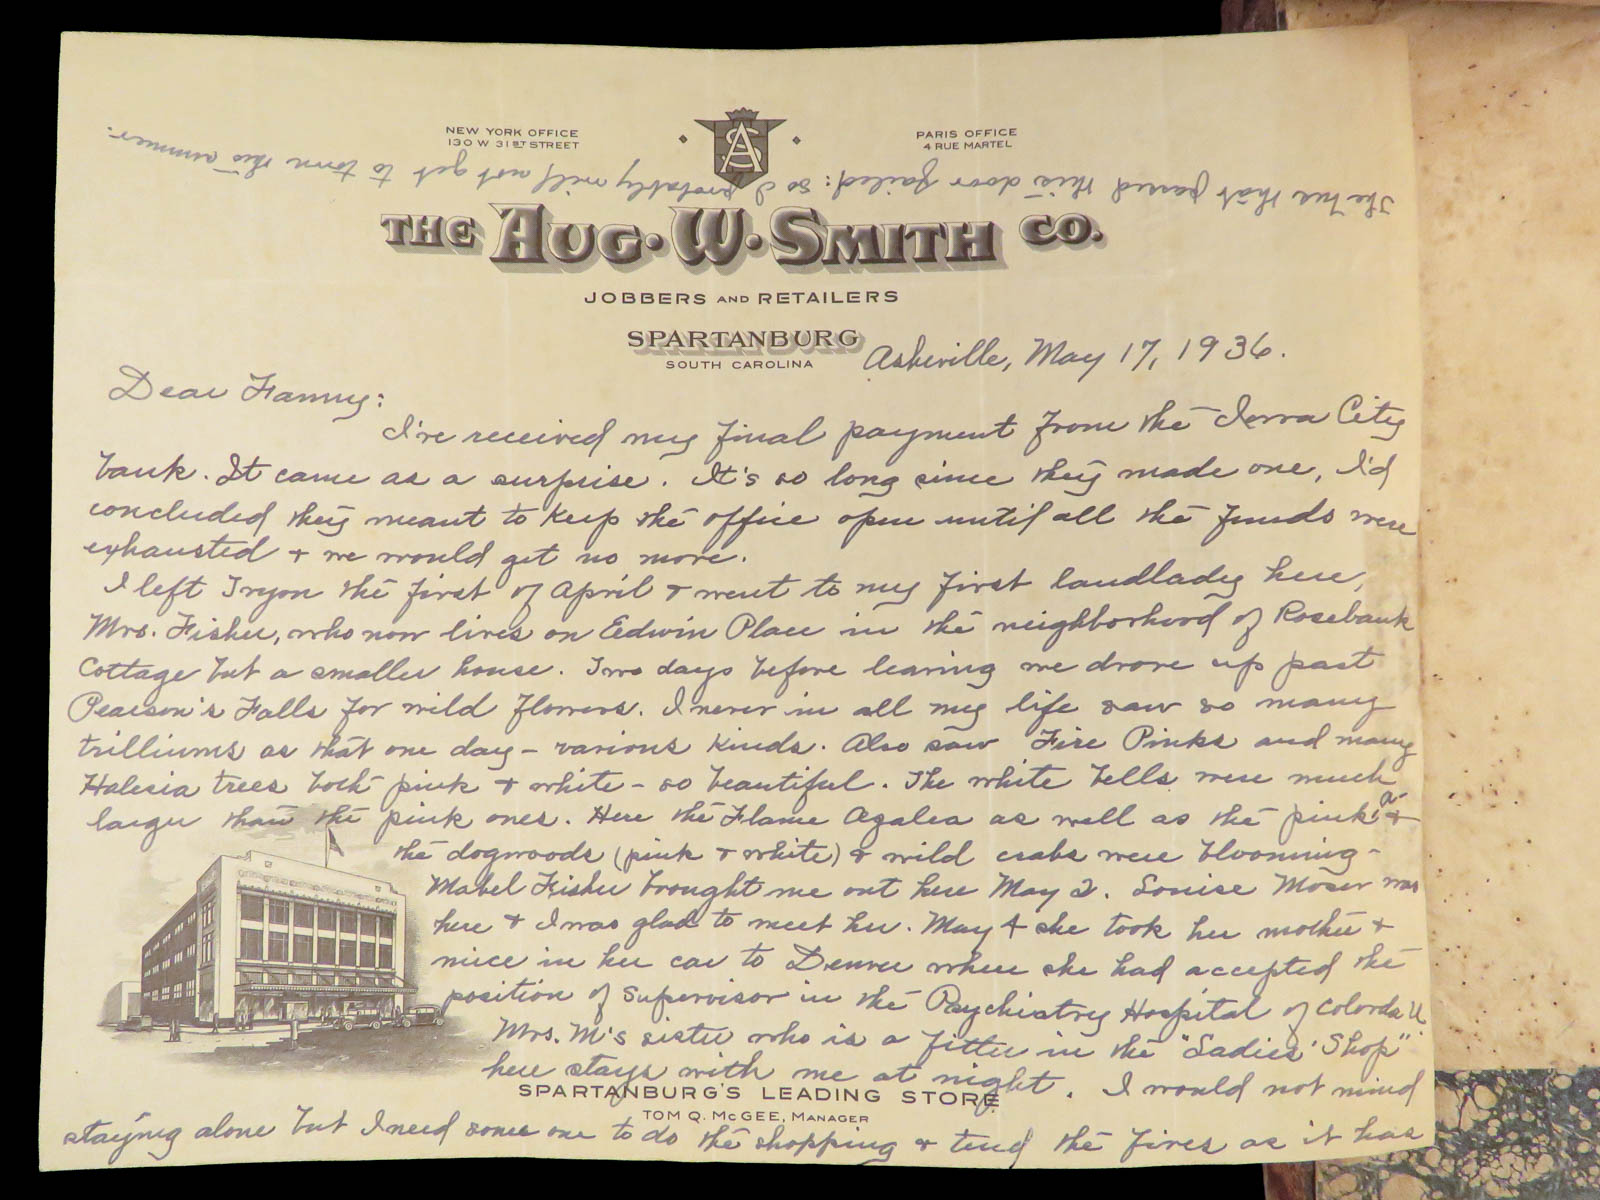 The bus that passed this door failed: so I probably will not get to town this summer.
NEW YORK OFFICE
130 W 31ST STREET
PARIS OFFICE
4 RUE MARTEL
THE AUG. W. SMITH CO.
JOBBERS AND RETAILERS
SPARTANBURG
SOUTH CAROLINA
Asheville, May 17, 1936.
Dear Fanny:
I've received my final payment from the Iowa City
bank. It came as a surprise. It's so long since they made one, I'd
concluded they meant to keep the office open until all the funds were
exhausted + we would get no more.
I left Tryon the first of April + went to my first landlady here,
Mrs. Fisher, who now lives on Edwin Place in the neighborhood of Rosebank
Cottage but a smaller house. Two days before leaving we drove up past
Pearson's Falls for wild flowers. I never in all my life saw so many
trilliums as that one day - various kinds. Also saw Fire Pinks and many
Halesia trees both pink + white - so beautiful. The white bells were much
larger than the pink ones. Here the Flame Azalea as well as the pink a +
the dogwoods (pink + white) + wild crabs were blooming -
Mabel Fisher brought me out here May 2. Louise Moser was
here + I was glad to meet her. May 4 she took her mother +
niece in her car to Denver where she had accepted the
position of Supervisor in the Psychiatry Hospital of Colorda U.
Mrs. M's sister who is a fitter in the "Ladies' Shop"
here stays with me at night. I would not mind
SPARTANBURG'S LEADING STORE
TOM Q. McGEE, MANAGER
staying alone but I need some one to do the shopping + tend the fires as it has